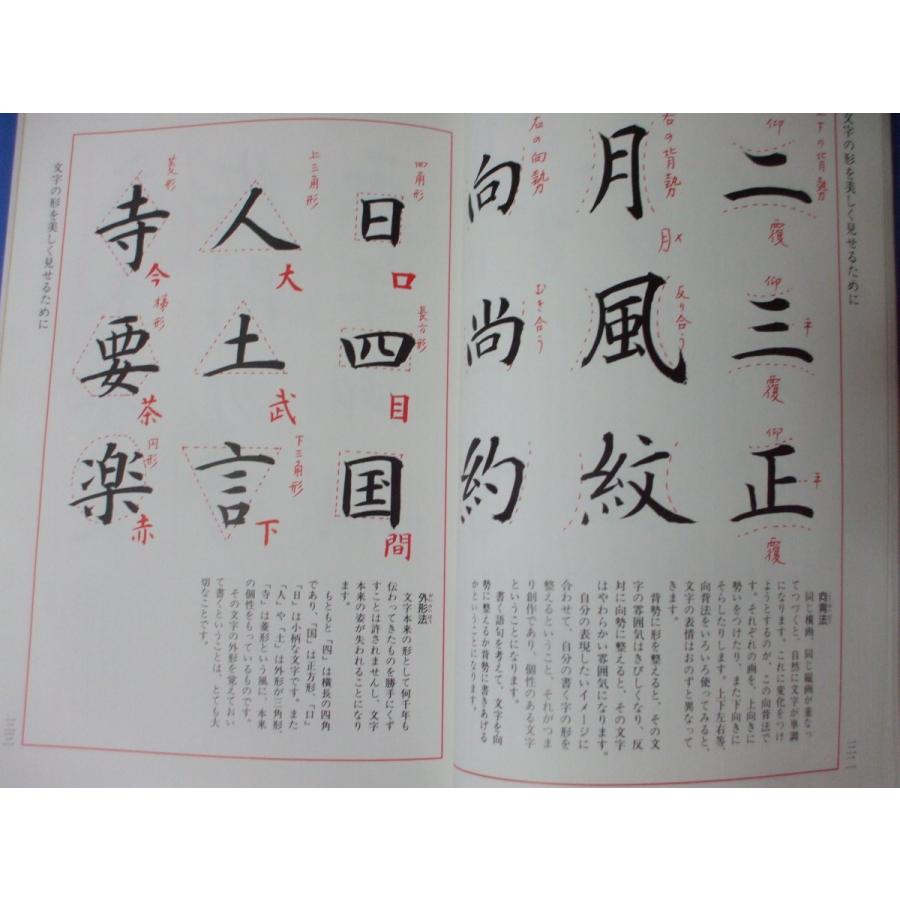 文字の形を美しく見せるために
下の背勢
仰
二
覆
仰
三
覆
仰
正
覆
右の背勢
月
月
反り合う
風
紋
右の向勢
向
むき合う
尚
約
向背法
同じ横画、同じ縦画が重なっ
てつづくと、自然に文字が単調
になります。これに変化をつけ
ようとするのが、この向背法で
す。それぞれの画を、上向きに
勢いをつけたり、また下向きに
そらしたりします。上下左右等、
向背法をいろいろ使ってみると、
文字の表情はおのずと異なって
きます。
背勢に形を整えると、その文
字の雰囲気はきびしくなり、反
対に向勢に整えると、その文字
はやわらかい雰囲気になります。
自分の表現したいイメージに
合わせて、自分の書く字の形を
整えるということ、それがつま
り創作であり、個性のある文字
ということになります。
書く語句を考えて、文字を向
勢に整えるか背勢に書きあげる
かということになります。
四角形
日
口
長方形
四
目
国
間
上三角形
人
大
土
武
下三角形
言
下
菱形
寺
今
梯形
要
茶
円形
楽
赤
文字の形を美しく見せるために
外形法
文字本来の形として何千年も
伝わってきたものを勝手にくず
すことは許されませんし、文字
本来の姿が失われることになり
ます。
もともと「四」は横長の四角
であり、「国」は正方形、「口」
「日」は小柄な文字です。また
「人」や「土」は外形が三角形、
「寺」は菱形という風に、本来
の個性をもっているものです。
その文字の外形を覚えておい
て書くということは、とても大
切なことです。